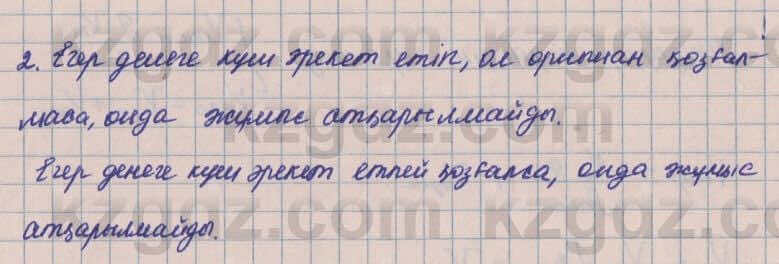 2. Егер денеге күш әрекет етіп, ол орнынан қозғал-
маса, онда жұмыс атқарылмайды.
Егер денеге күш әрекет етпей қозғалса, онда жұмыс
атқарылмайды.